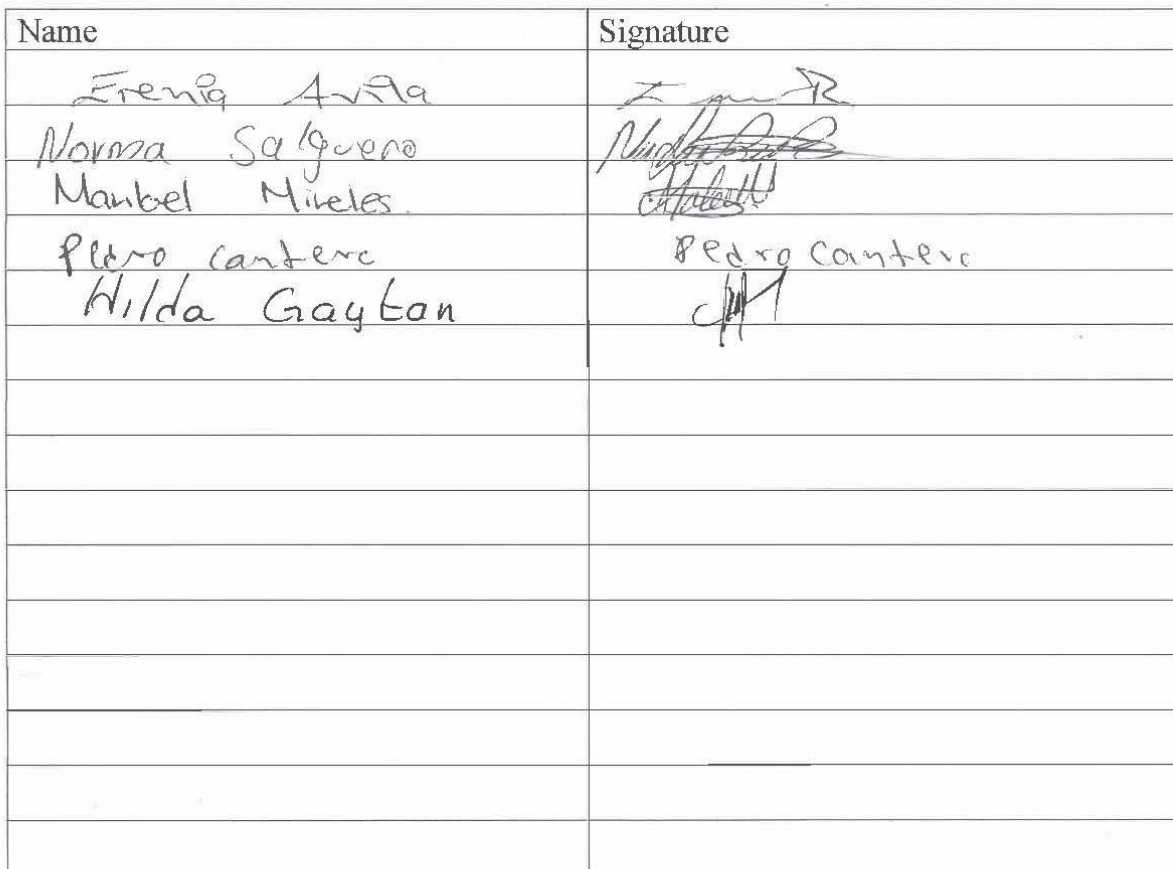 Name Signature
Erenia Avila
Norma Salguero
Maribel Mireles
Pedro Cantero Pedro Cantero
Hilda Gaytan